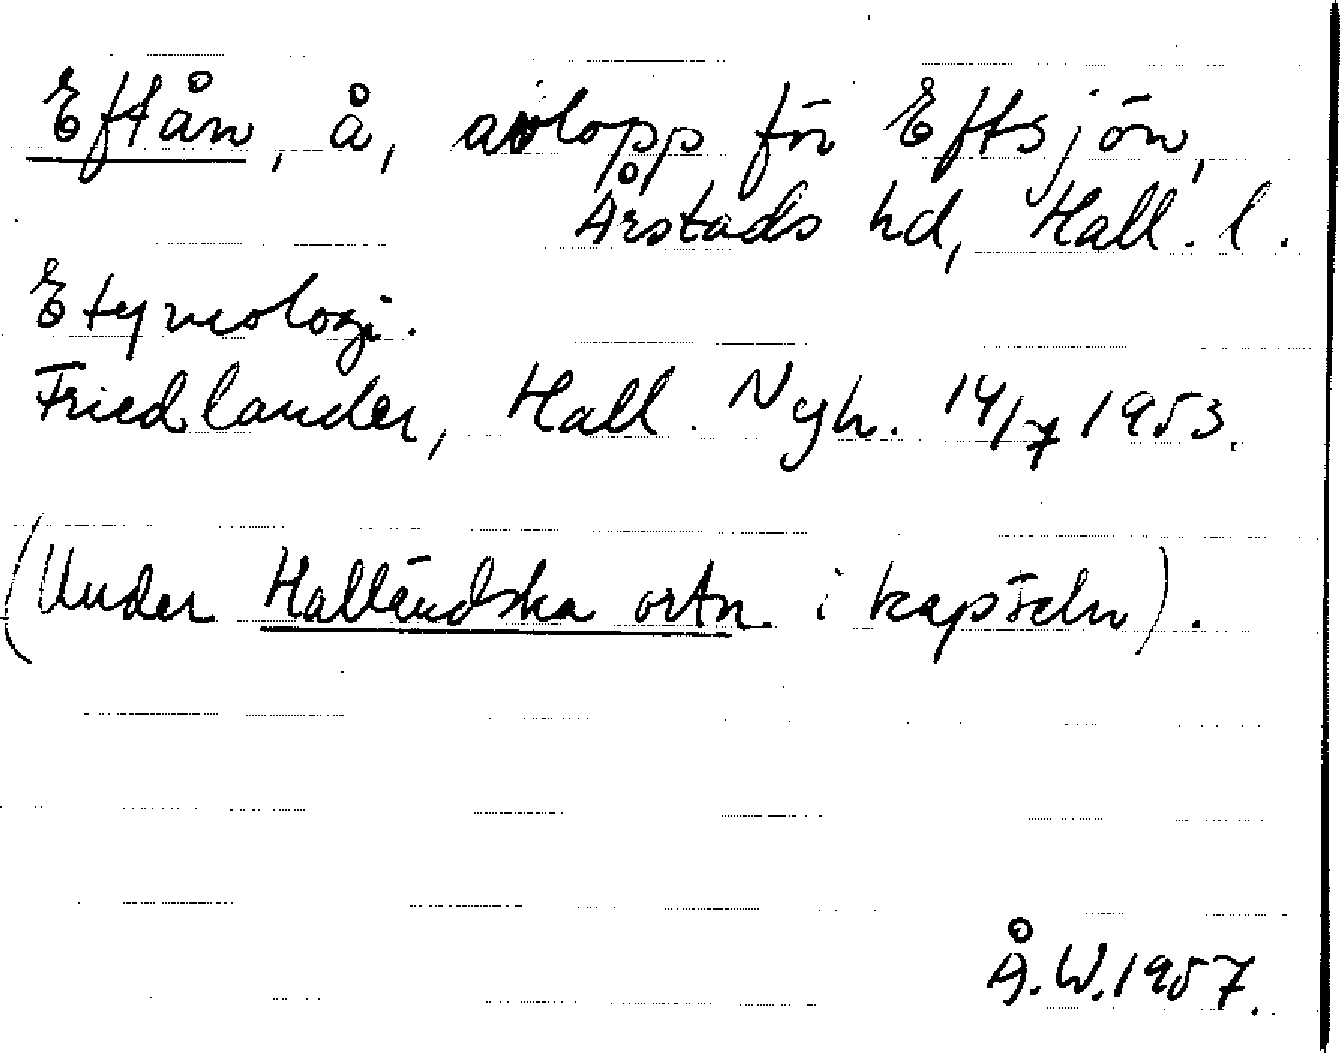 Eftån, å, avlopp för Eftsjön,
Årstads hd, Hall. l.
Etymologi.
Friedlander, Hall. Nyh. 14/7 1953.
(Under Halländska ortn i kapseln).
Å.W.1957.